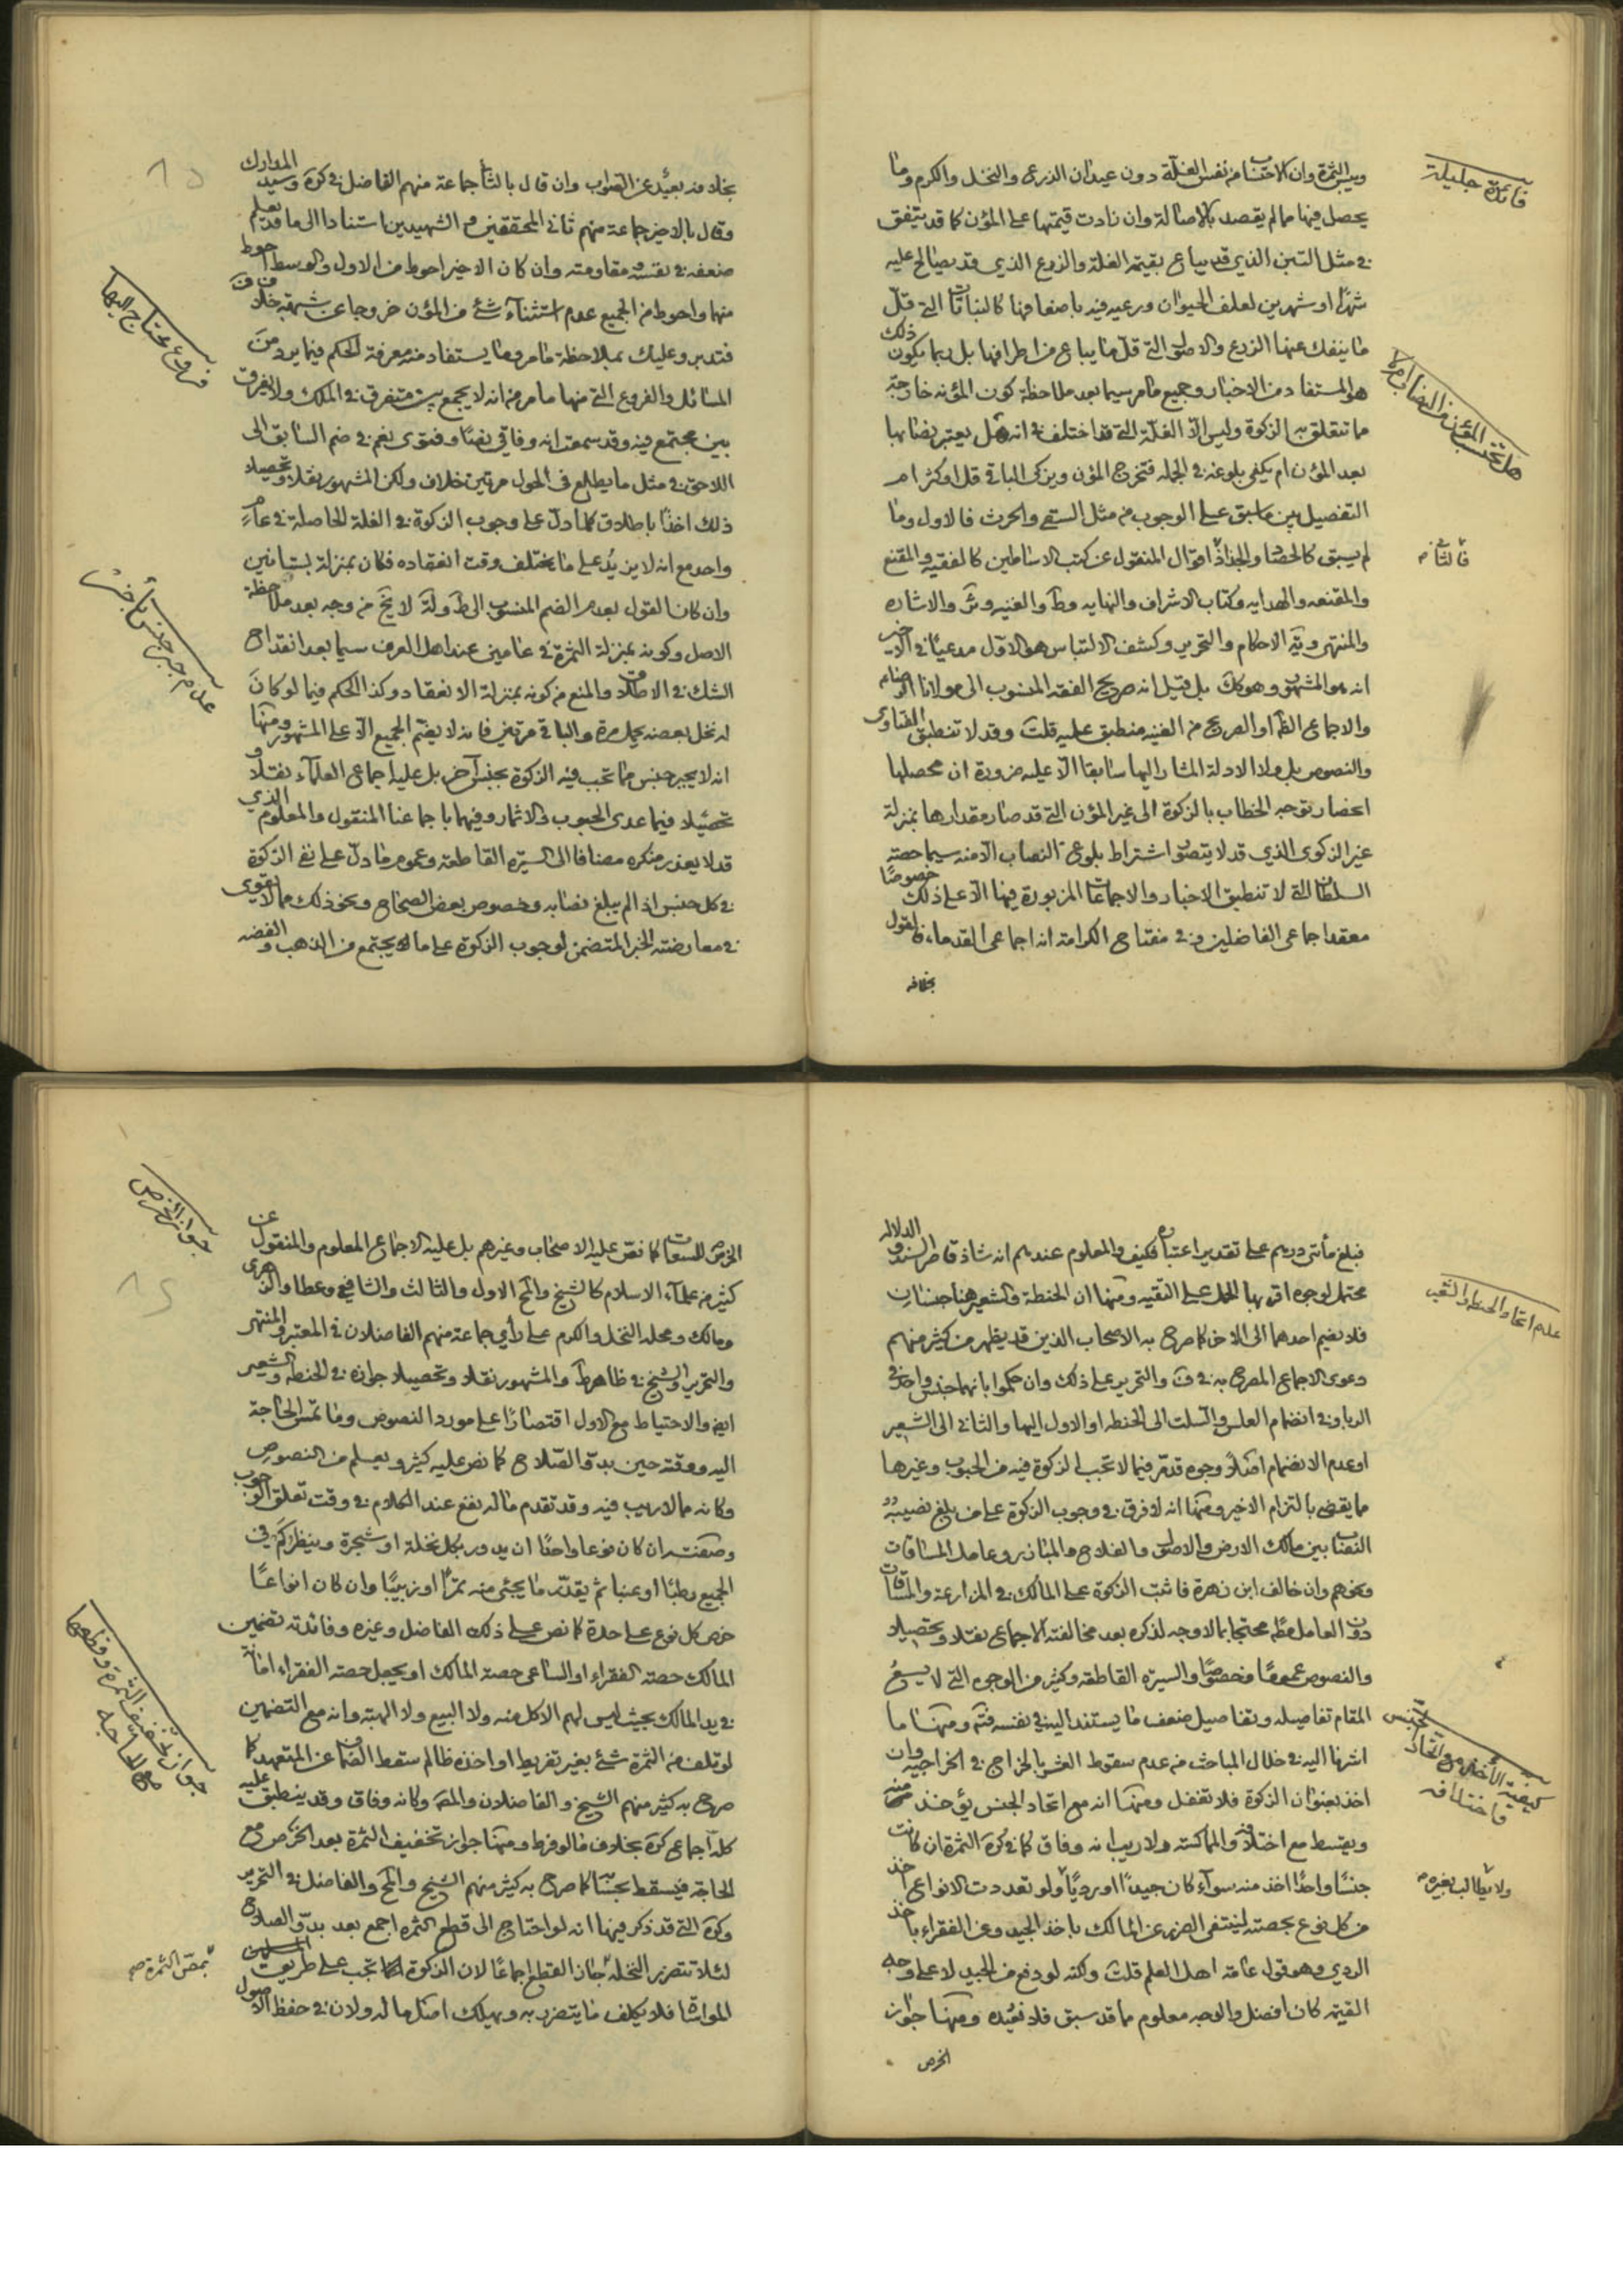 وبين الثمرة وان الاحتساب من نفس الغلة دون عيدان الزرع والنخل والكرم وما
يحصل فيها مما لم يقصد بالاصالة وان زادت قيمتها على المؤن كما قد يتفق
في مثل التبن الذي قد يباع بقيمة الغلة والزرع الذي قد يصالح عليه
شهرا او شهرين لعلف الحيوان ورعيه فيه باضعافها كالنباتات التي قل
ما ينفك عنها الزرع والاصل التي قل ما يباع من اطرافها بل ربما يكون ذلك
هو المستفاد من الاخبار وجميع ما مر سيما بعد ملاحظة كون المؤنة خارجة
مما تتعلق به الزكوة وليس الا الغلة التي قد اختلف في انه هل يعتبر نصابها
بعد المؤن ام يكفى بلوغه في الجملة فتخرج المؤن ويزكى الباقي قل او كثر ام
التفصيل بين ما سبق على الوجوب من مثل السقي والحرث فالاول وما
لم يسبق كالحصاد والجذاذ اقوال المنقول عن كتب الاساطين كالفقيه والمقنع
والمقنعه والهدايه وكتاب الاشراف والنهايه وط والغنيه وئر والاشاره
والمنتهى ويه الاحكام والتحرير وكشف الالتباس هو الاول مدعيا في الاخير
انه هو المشهور وهو كك بل قيل انه صريح الفقه المنسوب الى مولانا الرضا
والاجماع الظ او الصريح من الغنيه منطبق عليه قلت وقد لا تنطبق الفتاوى
والنصوص بل ولا الادلة المشار اليها سابقا الا عليه ضرورة ان محصلها
انحصار توجه الخطاب بالزكوة الى غير المؤن التي قد صار مقدارها بمنزلة
غير الزكوى الذي قد لا يتصور اشتراط بلوغ النصاب الا منه سيما حصة
السلطان التي لا تنطبق الاخبار والاجماعات المزبورة فيها الا على ذلك خصوصا
معقد اجماعي الفاضلين وفي مفتاح الكرامة انه اجماعي القدماء فالقول
بخلافه
فائدة جليلة
هل تحتسب المؤن من النصاب ام لا
فالثا
بخلافه بعيد عن الصواب وان قال بالثا جماعة منهم الفاضل في كرة وسيد المدارك
وقال بالاخير جماعة منهم ثاني المحققين والشهيدين استنادا الى ما قد يعلم
ضعفه في نفسه ومقاومته وان كان الاخير احوط من الاول والوسط احوط
منها واحوط من الجميع عدم استثناء شئ من المؤن خروجا عن شبهة خلاف
فتدبر وعليك بملاحظة ما مر وما يستفاد منه معرفة الحكم فيما يرد من
المسائل والفروع التي منها ما مر من انه لا يجمع بين متفرق في الملك ولا يفرق
بين مجتمع فيه وقد سمعت انه وفاقي نصا وفتوى نعم في ضم السابق الى
اللاحق في مثل ما يطلع في الحول مرتين خلاف ولكن المشهور نقلا وتحصيلا
ذلك اخذا باطلاق كلما دل على وجوب الزكوة في الغلة الحاصلة في عام
واحد مع انه لا يزيد على ما يختلف وقت انعقاده فكان بمنزلة بستانين
وان كان القول بعدم الضم المنسوب الى ط ولة لا يخ من وجه بعد ملاحظة
الاصل وكونه بمنزلة الثمرة في عامين عند اهل العرف سيما بعد انقداح
الشك في الاطلاقات والمنع من كونه بمنزلة الانعقاد وكذا الحكم فيما لو كان
له نخل بعضه يحمل مرة والباقي مرتين فانه لا يضم الجميع الا على المشهور ومنها
انه لا يجبر جنس مما تجب فيه الزكوة بجنس آخر بل عليه اجماع العلماء نقلا و
تحصيلا فيما عدى الحبوب والاثمار وفيهما باجماعنا المنقول والمعلوم الذي
قد لا يعذر منكره مضافا الى السيرة القاطعة وعموم ما دل على نفى الزكوة
في كل جنس اذا لم يبلغ نصابه وخصوص بعض الصحاح ونحو ذلك مما لا يقوى
في معارضته الخبر المتضمن لوجوب الزكوة على ماله يجتمع من الذهب والفضه
فروع يحتاج اليها
عدم جبر جنس بآخر
فبلغ مأتى درهم على تقدير اعتباره فكيف والمعلوم عندهم انه شاذ قاصر السند والدلاله
محتمل لوجوه اقربها الحمل على التقيه ومنها ان الحنطة والشعير هنا جنسان
فلا يضم احدهما الى الاخر كما صرح به الاصحاب الذين قد يظهر من كثير منهم
دعوى الاجماع المصرح به في ف والتحرير على ذلك وان حكموا بانهما جنس واحد في
الربا وفي انضمام العلس والسلت الى الحنطه او الاول اليها والثاني الى الشعير
او عدم الانضمام اقوال ووجوه قد مر فيما لا تجب الزكوة فيه من الحبوب وغيرها
ما يقضى بالتزام الاخير ومنها انه لا فرق في وجوب الزكوة على من بلغ نصيبه
النصاب بين مالك الارض والاصل والفلاح والمباذر وعامل المساقات
ونحوهم وان خالف ابن زهرة فاثبت الزكوة على المالك في المزارعة والمساقات
دون العامل مط محتجا بما لا وجه لذكره بعد مخالفته الاجماع نقلا وتحصيلا
والنصوص عموما وخصوصا والسيرة القاطعه وكثير من الوجوه التي لا يسع
المقام تفاصيله وتفاصيل ضعف ما يستند اليه في نفسه فتم ومنها ما
اشرنا اليه في خلال المباحث من عدم سقوط العشر بالخراج في الخراجيه وان
اخذ بعنوان الزكوة فلا تغفل ومنها انه مع اتحاد الجنس يؤخذ منه
ويقسط مع اختلافه والماكسته ولا ريب انه وفاق كما في كرة الثمرة ان كانت
جنسا واحدا اخذ منه سواء كان جيدا او رديا ولو تعددت الانواع اخذ
من كل نوع بحصته لينتفى الضرر عن المالك باخذ الجيد وعن الفقراء باخذ
الردي وهو قول عامة اهل العلم قلت ولكنه لو دفع من الجيد لا على وجه
القيمة كان افضل والوجه معلوم مما قد سبق فلا نعيده ومنها جواز
الخرص
عدم اتحاد الحنطه والشعير
كيفية الأخذ مع اتحاد الجنس
واختلافه
ولا يطالب بغيره
الخرص للسعات كما نص عليه الاصحاب وغيرهم بل عليه الاجماع المعلوم والمنقول عن
كثير من علماء الاسلام كالشيخ والمح الاول والثالث والشافعي وعطا والزهري
ومالك ومحله النخل والكرم على رأي جماعة منهم الفاضلان في المعتبر والمنتهى
والتحرير والشيخ في ظاهر ط والمشهور نقلا وتحصيلا جوازه في الحنطه والشعير
ايضا والاحتياط مع الاول اقتصارا على مورد النصوص وما تمس الحاجة
اليه ووقته حين بدو الصلاح كما نص عليه كثير ويعلم من النصوص
وكانه مما لا ريب فيه وقد تقدم ما له نفع عند الكلام في وقت تعلق الوجوب
وصفته ان كان نوعا واحدا ان يدور بكل نخلة او شجرة وينظر كم في
الجميع رطبا او عنبا ثم يقدر ما يجئى منه تمرا او زبيبا وان كان انواعا
خرص كل نوع على حدة كما نص على ذلك الفاضل وغيره وفائدته تضمين
المالك حصة الفقراء او الساعى حصة المالك او يجعل حصة الفقراء امانة
في يد المالك بحيث ليس لهم الاكل منه ولا البيع ولا الهبة وانه مع التضمين
لو تلف من الثمرة شئ بغير تفريط او اخذه ظالم سقط الضمان عن المتعهد كما
صرح به كثير منهم الشيخ والفاضلان والمقه وكانه وفاق وقد ينطبق عليه
كله اجماع كرة بخلاف ما لو فرط ومنها جواز تخفيف الثمرة بعد الخرص مع
الحاجة فيسقط بحسابه كما صرح به كثير منهم الشيخ والمح والفاضل في التحرير
وكرة التي قد ذكر فيها انه لو احتاج الى قطع الثمره اجمع بعد بدو الصلاح
لئلا تتضرر النخلة جاز القطع اجماعا لان الزكوة انما تجب على طريق
المواساة فلا يكلف ما يتضرر به ويهلك اصل ماله ولان في حفظ الاصول
جواز الخرص
جواز تخفيف الثمرة وقطعها
مع الحاجة